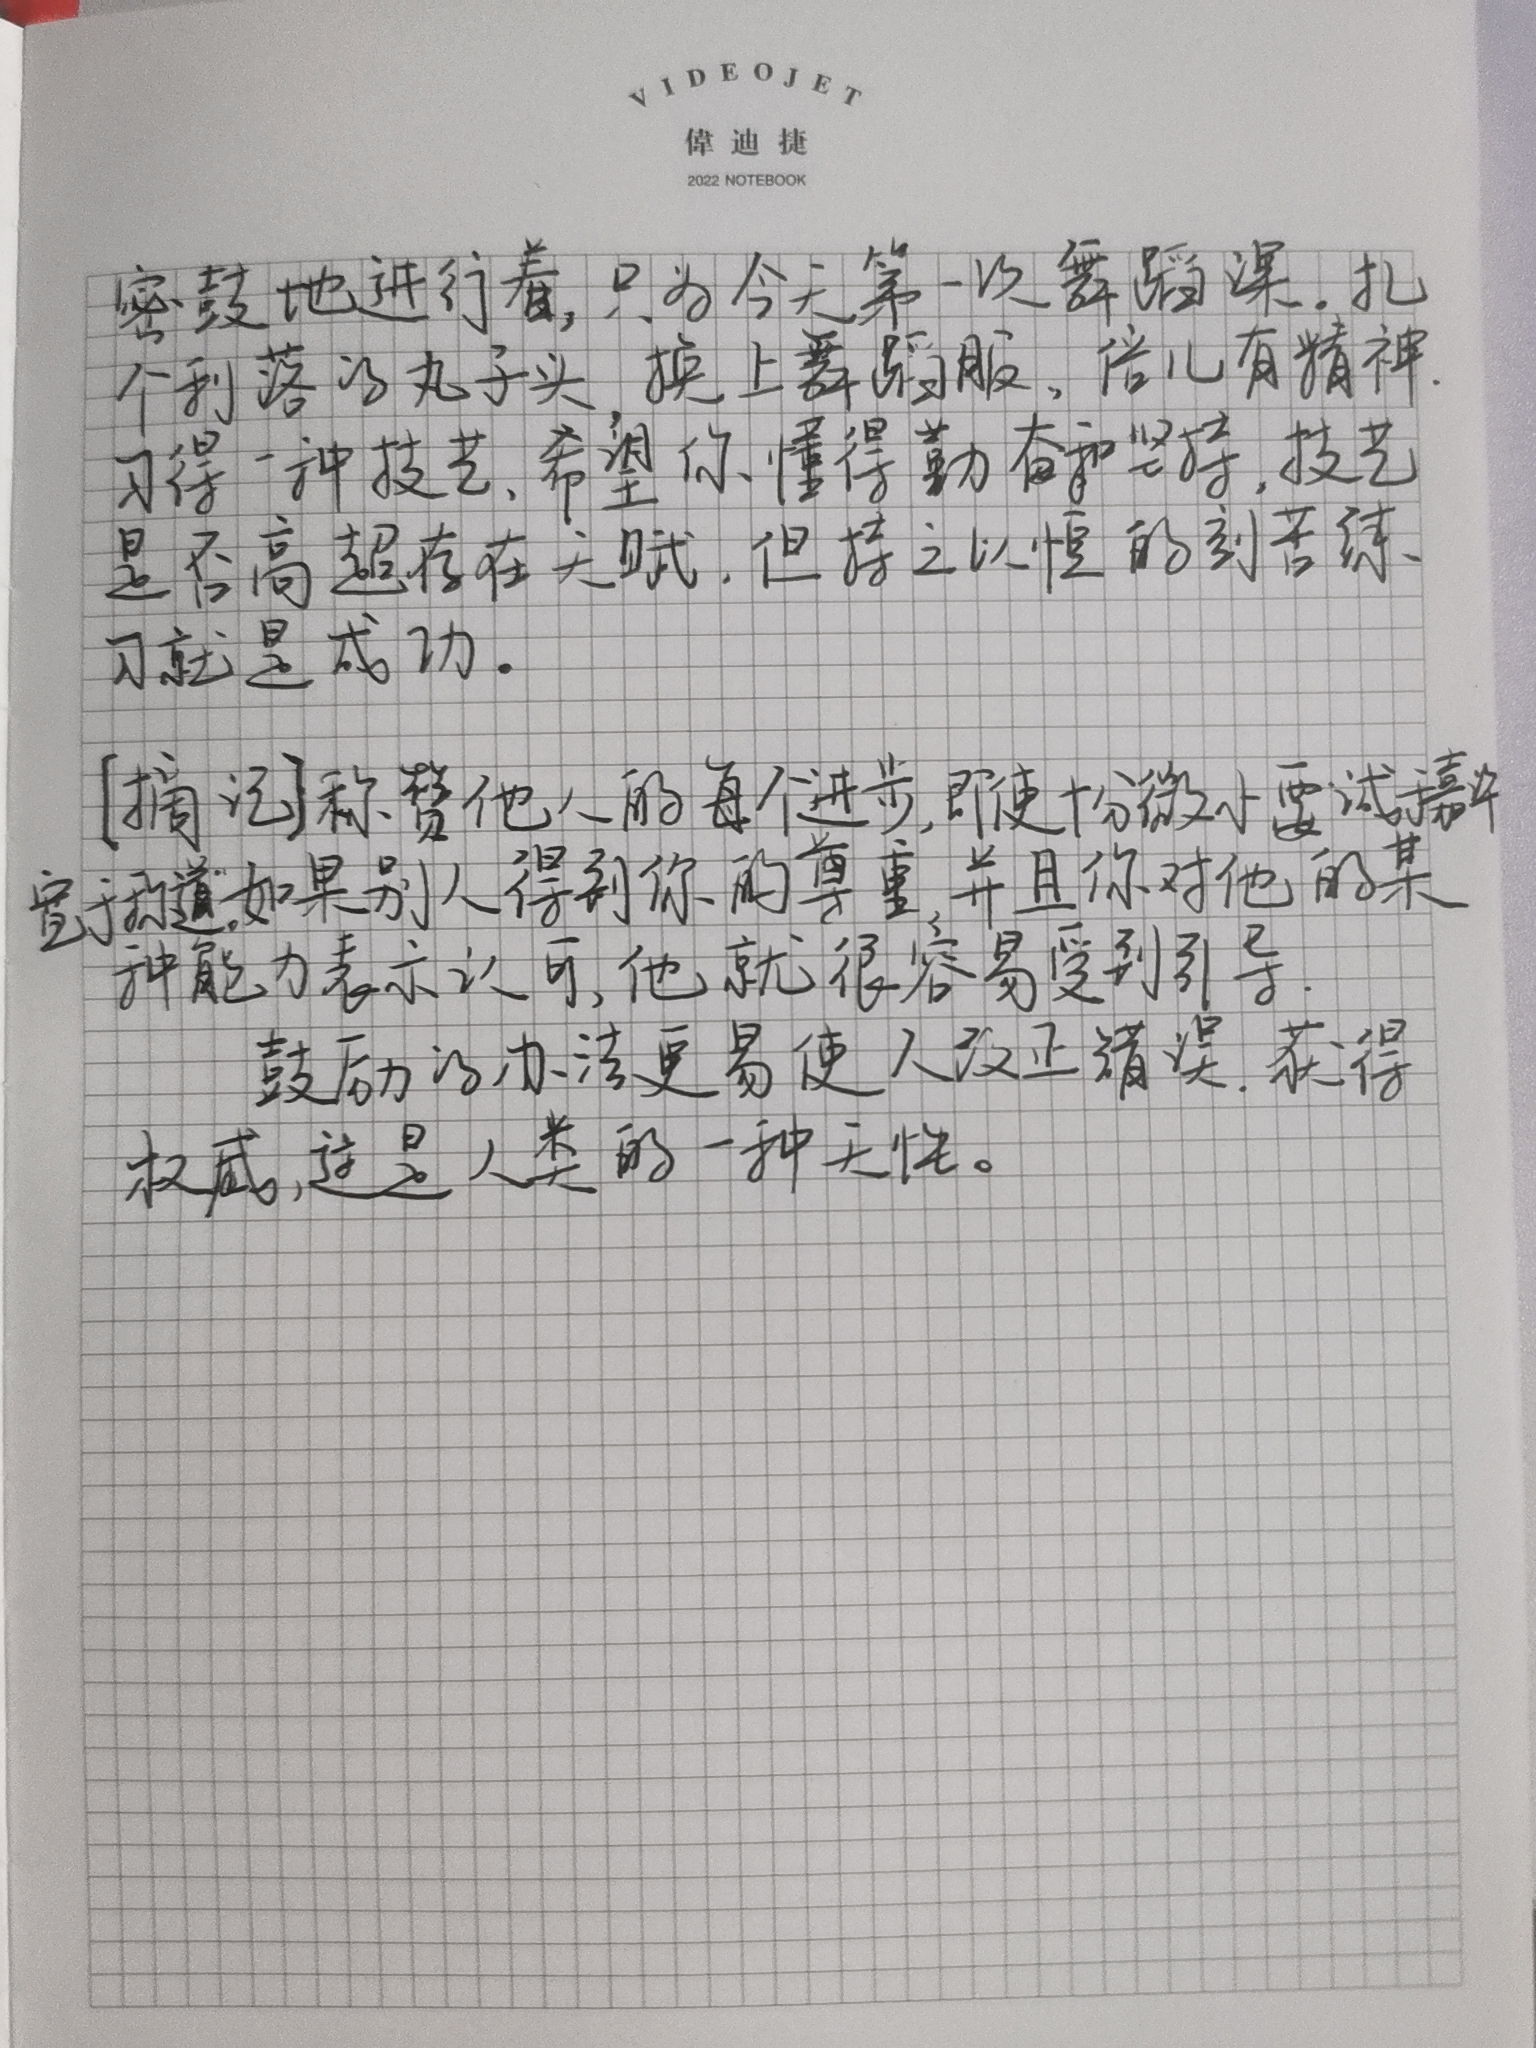 VIDEOJET
偉迪捷
2022 NOTEBOOK
密鼓地进行着,只为今天第一次舞蹈课。扎
个利落的丸子头,换上舞蹈服,倍儿有精神.
习得一种技艺、希望你懂得勤奋和坚持,技艺
是否高超存在天赋.但持之以恒的刻苦练
习就是成功。
[摘记]称赞他人的每个进步,即使十分微小要诚于嘉许
宽于称道.如果别人得到你的尊重,并且你对他的某
种能力表示认可,他就很容易受到引导.
鼓励的办法更易使人改正错误.获得
权威,这是人类的一种天性。